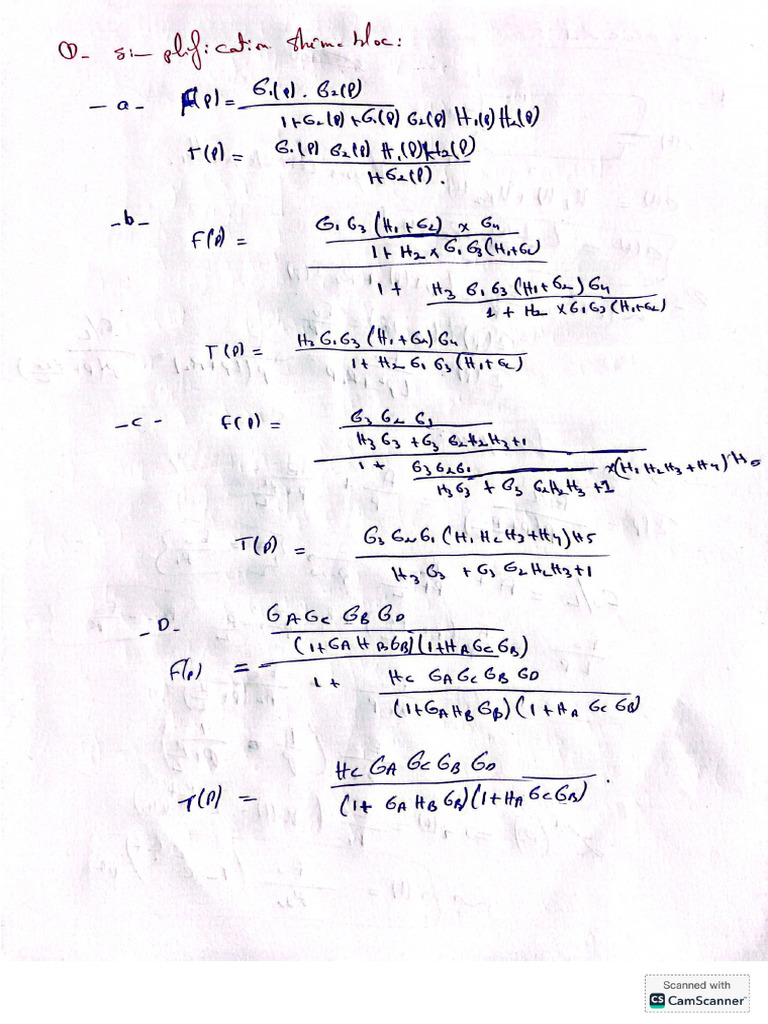 ①- simplification shéma bloc:
- a - F(p) = G₁(p) . G₂(p) / 1+G₂(p)+G₁(p) G₂(p) H₁(p) H₂(p)
T(p) = G₁(p) G₂(p) H₁(p) H₂(p) / 1+G₂(p).
- b - F(p) = G₁ G₃ (H₁+G₂) x G₄ / 1+ H₂ x G₁ G₃ (H₁+G₂) / 1 + H₃ G₁ G₃ (H₁+G₂) G₄ / 1 + H₂ x G₁ G₃ (H₁+G₂)
T(p) = H₃ G₁ G₃ (H₁+G₂) G₄ / 1+ H₂ G₁ G₃ (H₁+G₂)
- c - F(p) = G₃ G₂ G₁ / H₃ G₃ + G₃ G₂ H₂ H₃ +1 / 1 + G₃ G₂ G₁ / H₃ G₃ + G₃ G₂ H₂ H₃ +1 x (H₁ H₂ H₃ + H₄) H₅
T(p) = G₃ G₂ G₁ (H₁ H₂ H₃ + H₄) H₅ / H₃ G₃ + G₃ G₂ H₂ H₃ +1
- D - F(p) = G_A G_C G_B G_D / (1+G_A H_B G_B)(1+H_A G_C G_B) / 1 + H_C G_A G_C G_B G_D / (1+G_A H_B G_B)(1+H_A G_C G_B)
T(p) = H_C G_A G_C G_B G_D / (1+ G_A H_B G_B)(1+H_A G_C G_B).
Scanned with
CS CamScanner